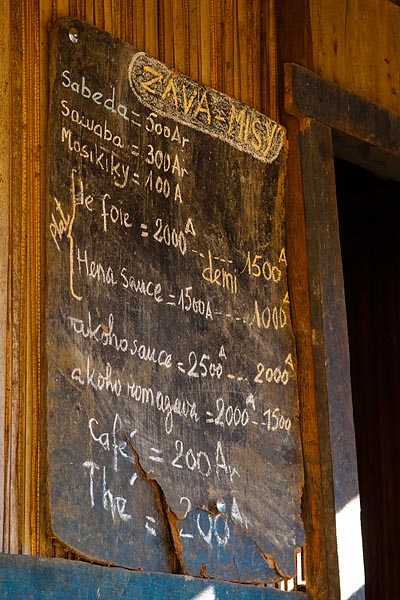 ZAVA-MISY
Sabeda = 500Ar
Sawaba = 300Ar
Mosikiky = 100A
plat
de foie = 2000A ... 1500A
demi
Hena sauce = 1500A .... 1000A
akoho sauce = 2500A ... 2000A
akoho romazava = 2000A .. 1500
café = 200Ar
Thé = 200A